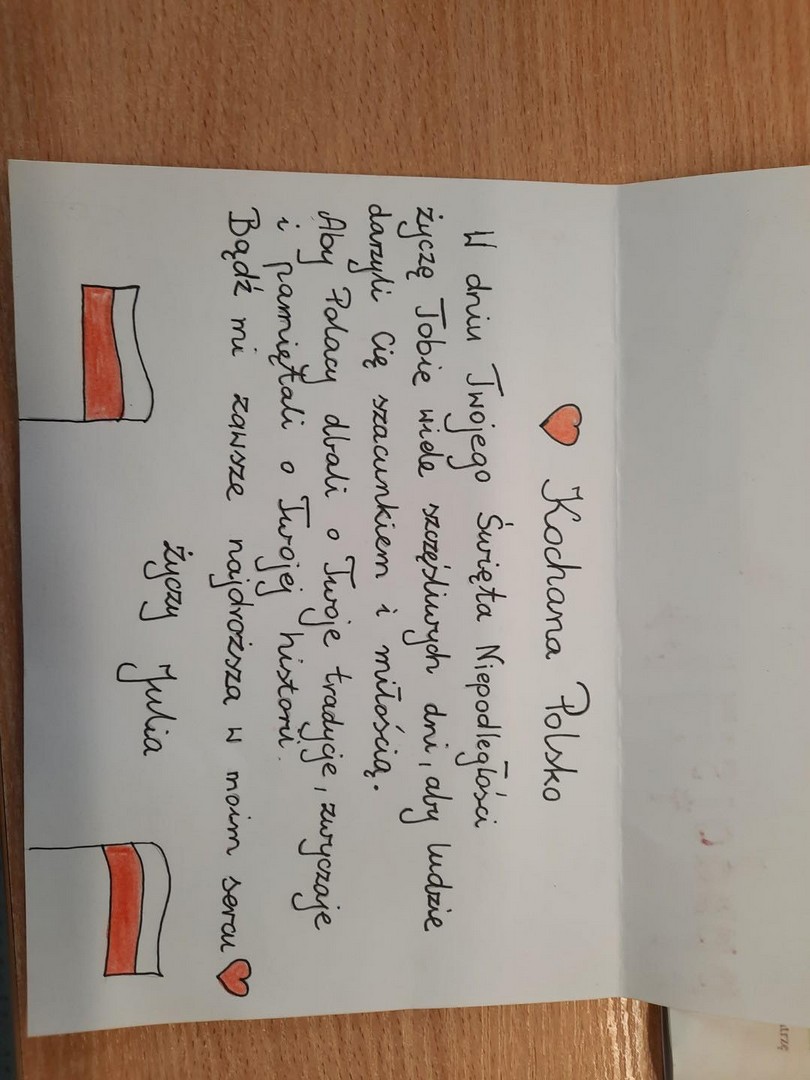 Kochana Polsko
W dniu Twojego Święta Niepodległości
życzę Tobie wiele szczęśliwych dni, aby ludzie
darzyli Cię szacunkiem i miłością.
Aby Polacy dbali o Twoje tradycje, zwyczaje
i pamiętali o Twojej historii.
Bądź mi zawsze najdroższa w moim sercu
Życzy Julia